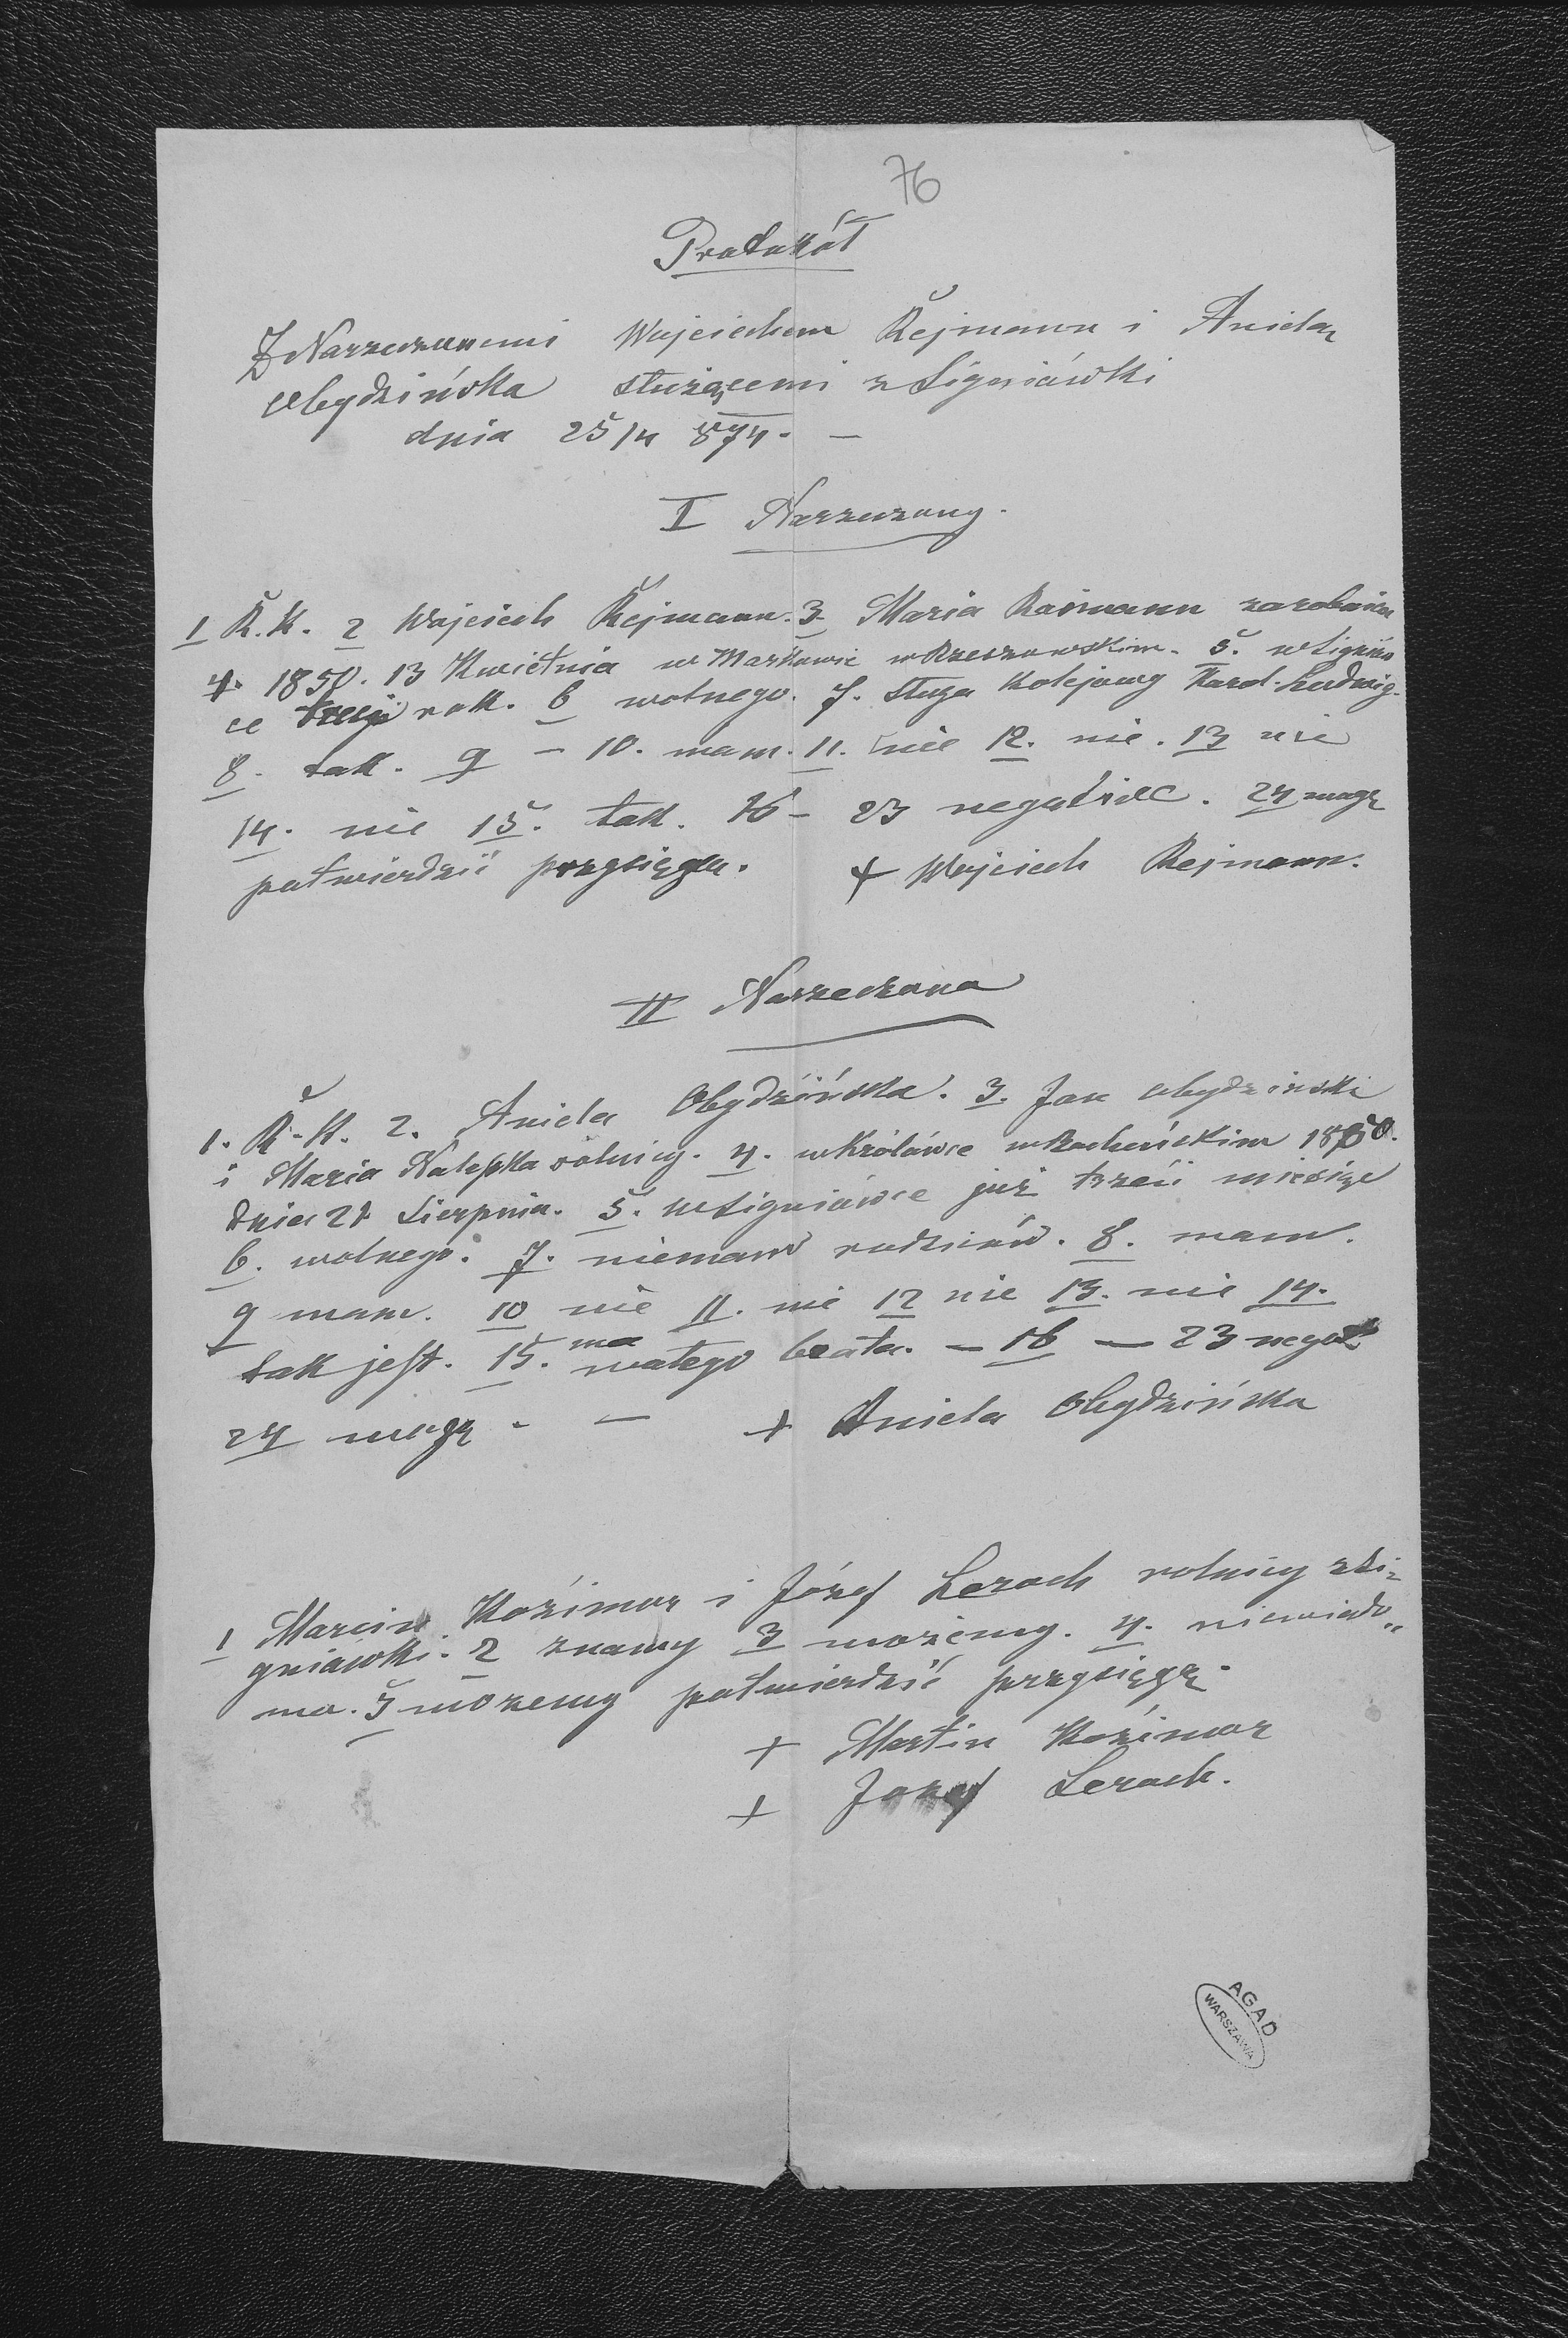 76
Protokół
Z Narzeczonemi Wojciechem Rejmann i Anielą
Obydzińska służącemi z Signiówki
dnia 25/4 874. —
I Narzeczony.
1 R.K. 2 Wojciech Rejmann. 3. Maria Rajmann zarobnica
4. 1850. 13 Kwietnia w Markowie w Rzeszowskim. 5. w Signiów
ce trzeci rok. 6 wolnego. 7. Sługa kolejowy Karol-Ludwig-
8. tak. 9 — 10. mam. 11. nie 12. nie. 13 nie
14. nie 15. tak. 16 — 23 negative. 24 mogę
potwierdzić przysięgą. + Wojciech Rejmann.
II Narzeczona
1. R.K. 2. Aniela Obydzińska. 3. Jan Obydzinski
i Maria Nalepka rolnicy. 4. w Królówce w Bocheńskim 1850.
dnia 21 Sierpnia. 5. w Signiówce już trzeci miesiąc
6. wolnego. 7. niemam rodziców. 8. mam.
9 mam. 10 nie 11. nie 12 nie 13. nie 14.
tak jest. 15. ma małego brata. — 16 — 23 negat
24 mogę. — + Aniela Obydzińska
1 Marcin Kozimor i Józef Lerach rolnicy z Si-
gniówki. 2 znamy 3 możemy. 4. niewiado„
mo. 5 możemy potwierdzić przysięgę.
+ Martin Kozimor
+ Jozef Lerach.
AGAD
WARSZAWA